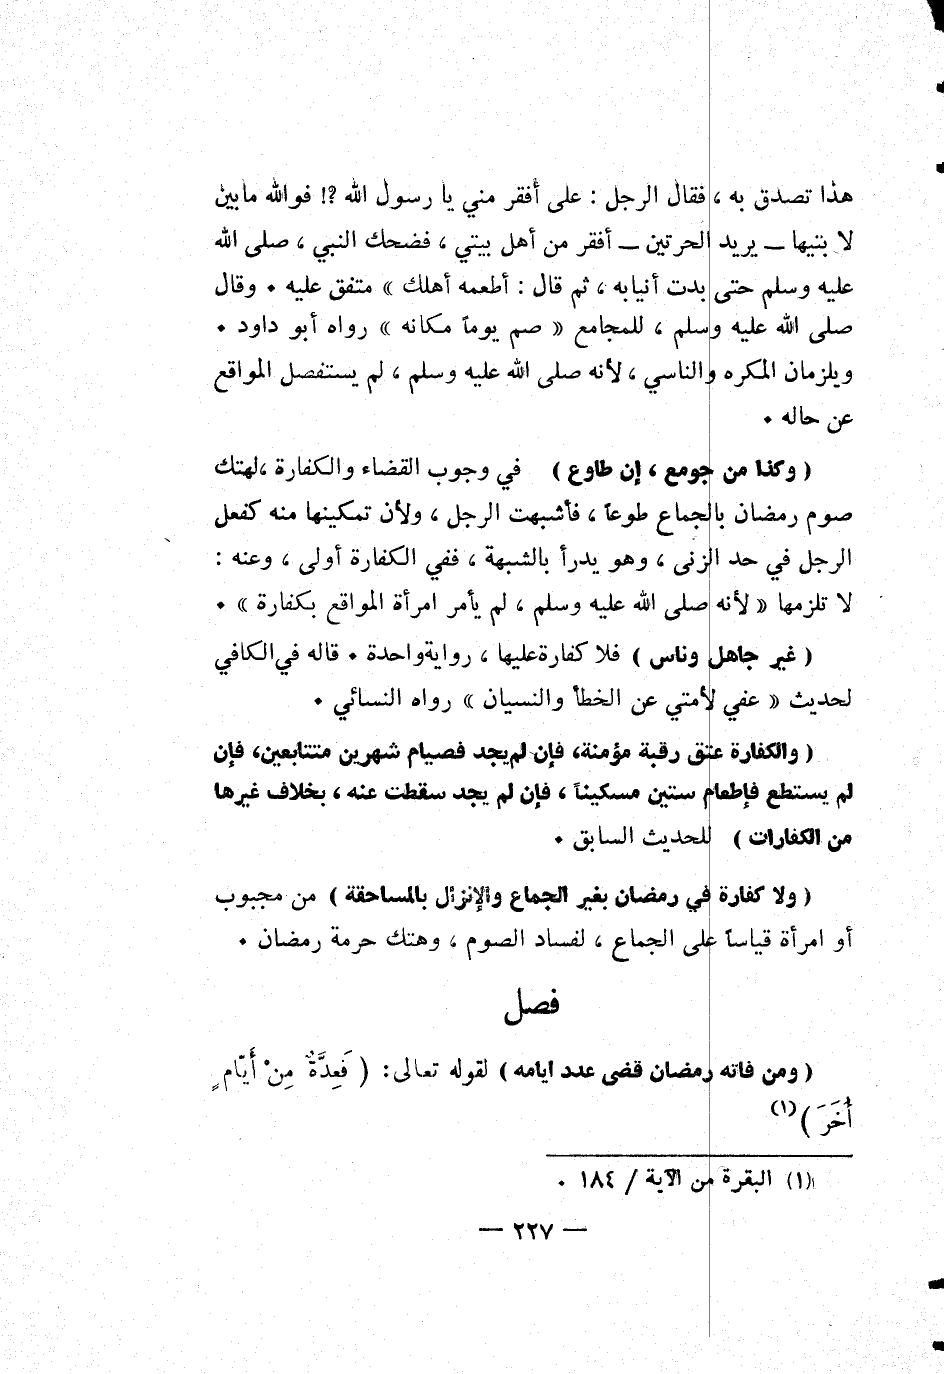 هذا تصدق به ، فقال الرجل : على أفقر مني يا رسول الله ؟! فوالله ما بين
لا بتيها – يريد الحرتين – أفقر من أهل بيتي ، فضحك النبي ، صلى الله
عليه وسلم حتى بدت أنيابه ، ثم قال : أطعمه أهلك » متفق عليه . وقال
صلى الله عليه وسلم ، للمجامع « صم يوماً مكانه » رواه أبو داود .
ويلزمان المكره والناسي ، لأنه صلى الله عليه وسلم ، لم يستفصل المواقع
عن حاله .
( وكذا من جومع ، إن طاوع ) في وجوب القضاء والكفارة ، لهتك
صوم رمضان بالجماع طوعاً ، فأشبهت الرجل ، ولأن تمكينها منه كفعل
الرجل في حد الزنى ، وهو يدرأ بالشبهة ، ففي الكفارة أولى ، وعنه :
لا تلزمها « لأنه صلى الله عليه وسلم ، لم يأمر امرأة المواقع بكفارة » .
( غير جاهل وناس ) فلا كفارة عليها ، رواية واحدة . قاله في الكافي
لحديث « عفي لأمتي عن الخطأ والنسيان » رواه النسائي .
( والكفارة عتق رقبة مؤمنة، فإن لم يجد فصيام شهرين متتابعين، فإن
لم يستطع فإطعام ستين مسكيناً ، فإن لم يجد سقطت عنه ، بخلاف غيرها
من الكفارات ) للحديث السابق .
( ولا كفارة في رمضان بغير الجماع والإنزال بالمساحقة ) من مجبوب
أو امرأة قياساً على الجماع ، لفساد الصوم ، وهتك حرمة رمضان .
فصل
( ومن فاته رمضان قضى عدد ايامه ) لقوله تعالى: ( فَعِدَّةٌ مِنْ أَيَّامٍ
أُخَرَ )(١)
(١) البقرة من الآية / ١٨٤ .
— ٢٢٧ —